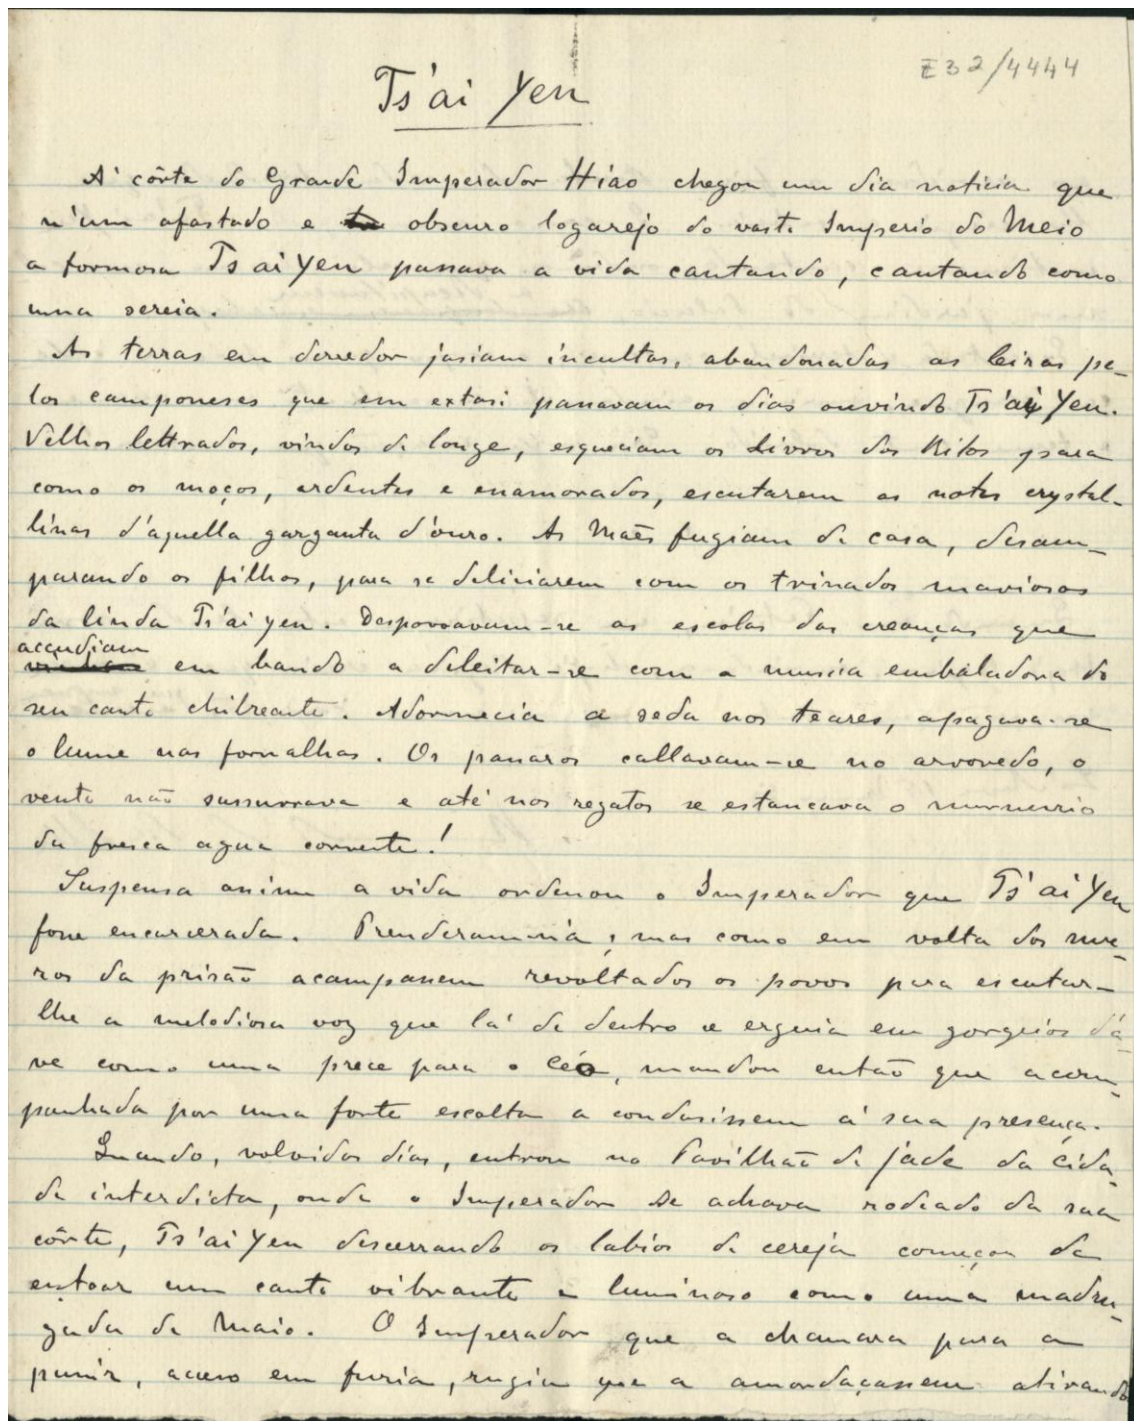 E32/4444
Ts'ai Yen
A' côrte do Grande Imperador Hiao chegou um dia noticia que
n'um afastado e obscuro logarejo do vasto Imperio do Meio
a formosa Ts'ai Yen passava a vida cantando, cantando como
uma sereia.
As terras em derredor jasiam incultas, abandonadas as leiras pe-
los camponeses que em extasi passavam os dias ouvindo Ts'ai Yen.
Velhos lettrados, vindos de longe, esqueciam os Livros dos Ritos para
como os moços, ardentes e enamorados, escutarem as notas crystal-
linas d'aquella garganta d'ouro. As Mães fugiam de casa, desam-
parando os filhos, para se deliciarem com os trinados maviosos
da linda Ts'ai yen. Despovoavam-se as escolas das creanças que
accudiam
em bando a deleitar-se com a musica embaladora do
seu canto chilreante. Adormecia a seda nos teares, apagava-se
o lume nas fornalhas. Os passaros callavam-se no arvoredo, o
vento não sussurrava e até nos regatos se estancava o murmurio
da fresca agua corrente!
Suspensa assim a vida ordenou o Imperador que Ts'ai Yen
fosse encarcerada. Prenderam-n'a; mas como em volta dos mu-
ros da prisão acampassem revoltados os povos para escutar-
lhe a melodiosa voz que lá de dentro se erguia em gorgeios d'a-
ve como uma prece para o céo, mandou então que acom-
panhada por uma forte escolta a condusissem á sua presença.
Quando, volvidos dias, entrou no Pavilhão de jade da cida-
de interdicta, onde o Imperador se achava rodeado da sua
côrte, Ts'ai Yen descerrando os labios de cereja começou de
entoar um canto vibrante e luminoso como uma madru-
gada de Maio. O Imperador que a chamara para a
punir, acceso em furia, rugia que a amordaçassem atirando